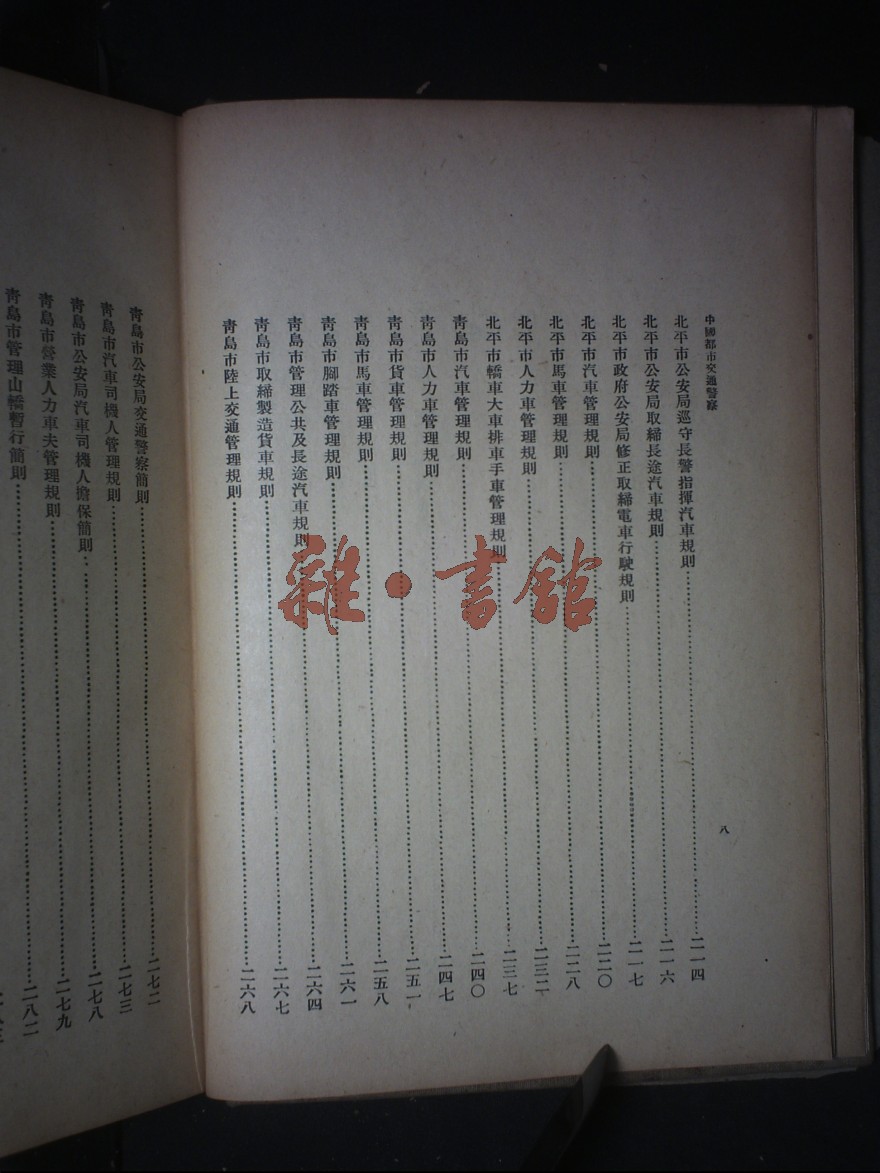 中國都市交通警察
北平市公安局巡守長警指揮汽車規則……二一四
北平市公安局取締長途汽車規則……二一六
北平市政府公安局修正取締電車行駛規則……二一七
北平市汽車管理規則……二二〇
北平市馬車管理規則……二二八
北平市人力車管理規則……二三二
北平市轎車大車排車手車管理規則……二三七
靑島市汽車管理規則……二四〇
靑島市人力車管理規則……二四七
靑島市貨車管理規則……二五一
靑島市馬車管理規則……二五八
靑島市腳踏車管理規則……二六一
靑島市管理公共及長途汽車規則……二六四
靑島市取締製造貨車規則……二六七
靑島市陸上交通管理規則……二六八
八
靑島市公安局交通警察簡則……二七二
靑島市汽車司機人管理規則……二七三
靑島市公安局汽車司機人擔保簡則……二七八
靑島市營業人力車夫管理規則……二七九
靑島市管理山轎暫行簡則……二八二
雜·書館